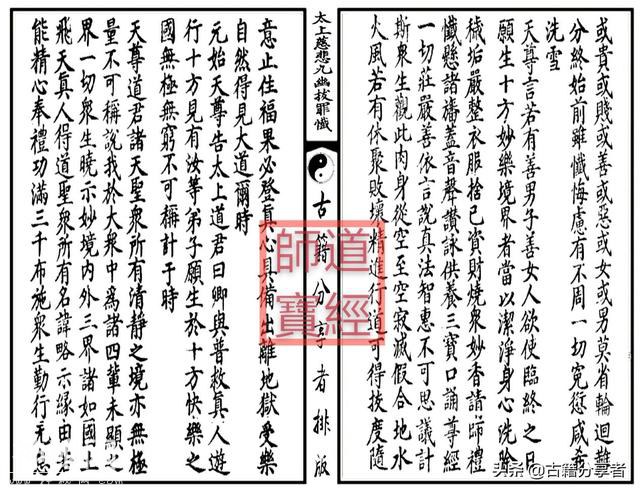 或貴或賤或善或惡或女或男莫省輪迴難
分終始前雖懺悔慮有不周一切寃愆咸希
洗雪
天尊言若有善男子善女人欲使臨終之日
願生十方妙樂境界者當以潔淨身心洗除
穢垢嚴整衣服捨己資財燒眾妙香請歸禮
懺懸諸旛蓋音聲讚詠供養三寶口誦尊經
一切莊嚴善依言說真法智惠不可思議計
斯眾生觀此肉身從空至空寂滅假合地水
火風若有休聚敗壞精進行道可得拔度隨
太上慈悲九幽拔罪懺
古籍分享者排版
意止住福果必登真心具備出離地獄受樂
自然得見大道爾時
元始天尊告太上道君曰卿與普救真人遊
行十方見有汝等弟子願生於十方快樂之
國無極無窮不可稱計于時
天尊道君諸天聖眾所有清靜之境亦無極
量不可稱說我於大眾中為諸四輩未顯之
界一切眾生曉示妙境內外三界諸如國土
飛天真人得道聖眾所有名諱略示緣由若
能精心奉禮功滿三千布施眾生勤行元悫
道經
師寶
头条 @古籍分享者